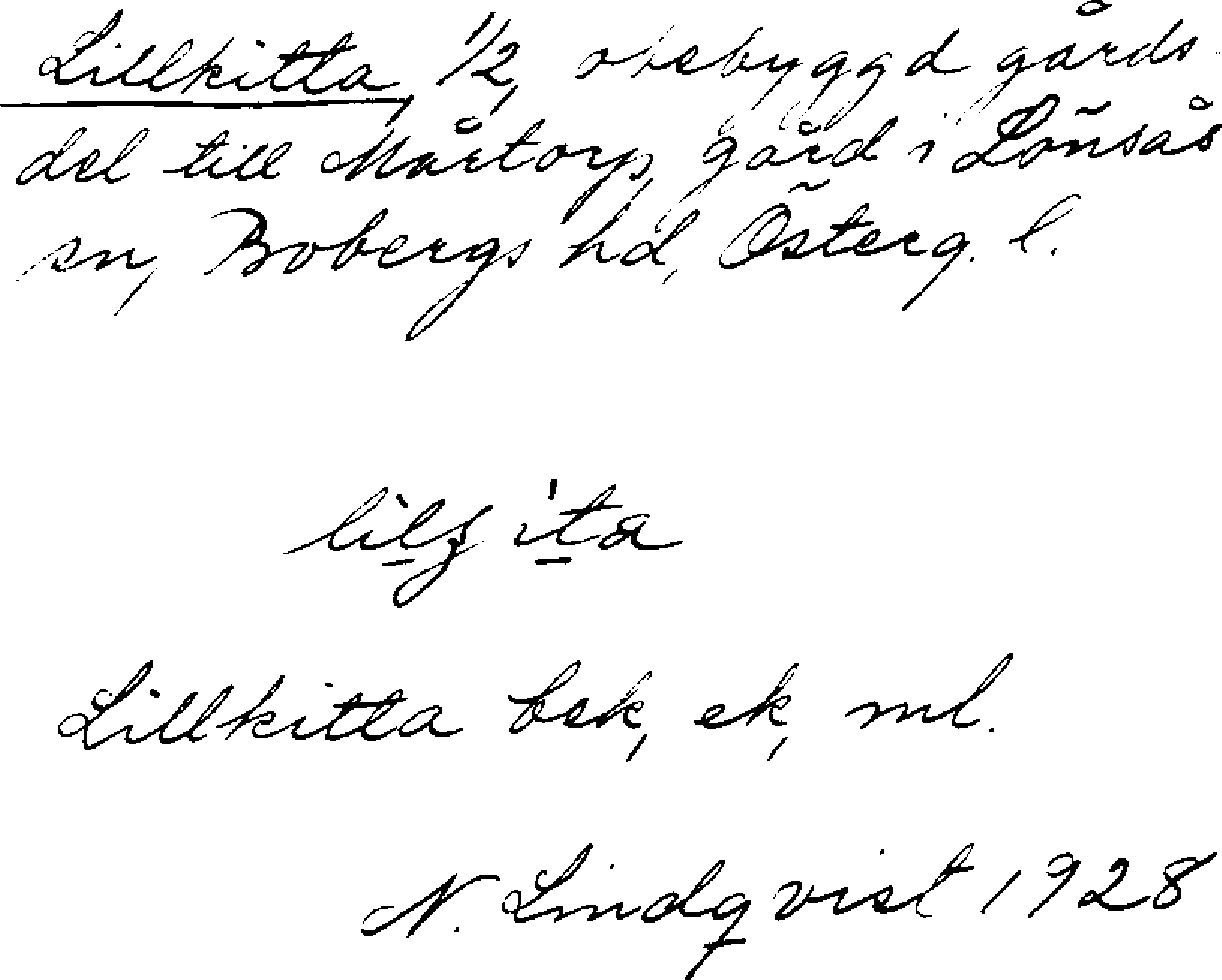 Lillkitta, 1/2, obebyggd gårds-
del till Mårtorp, gård i Lönsås
sn, Bobergs hd, Österg. l.
Lillkitta bek, ek, ml.
N. Lindqvist 1928